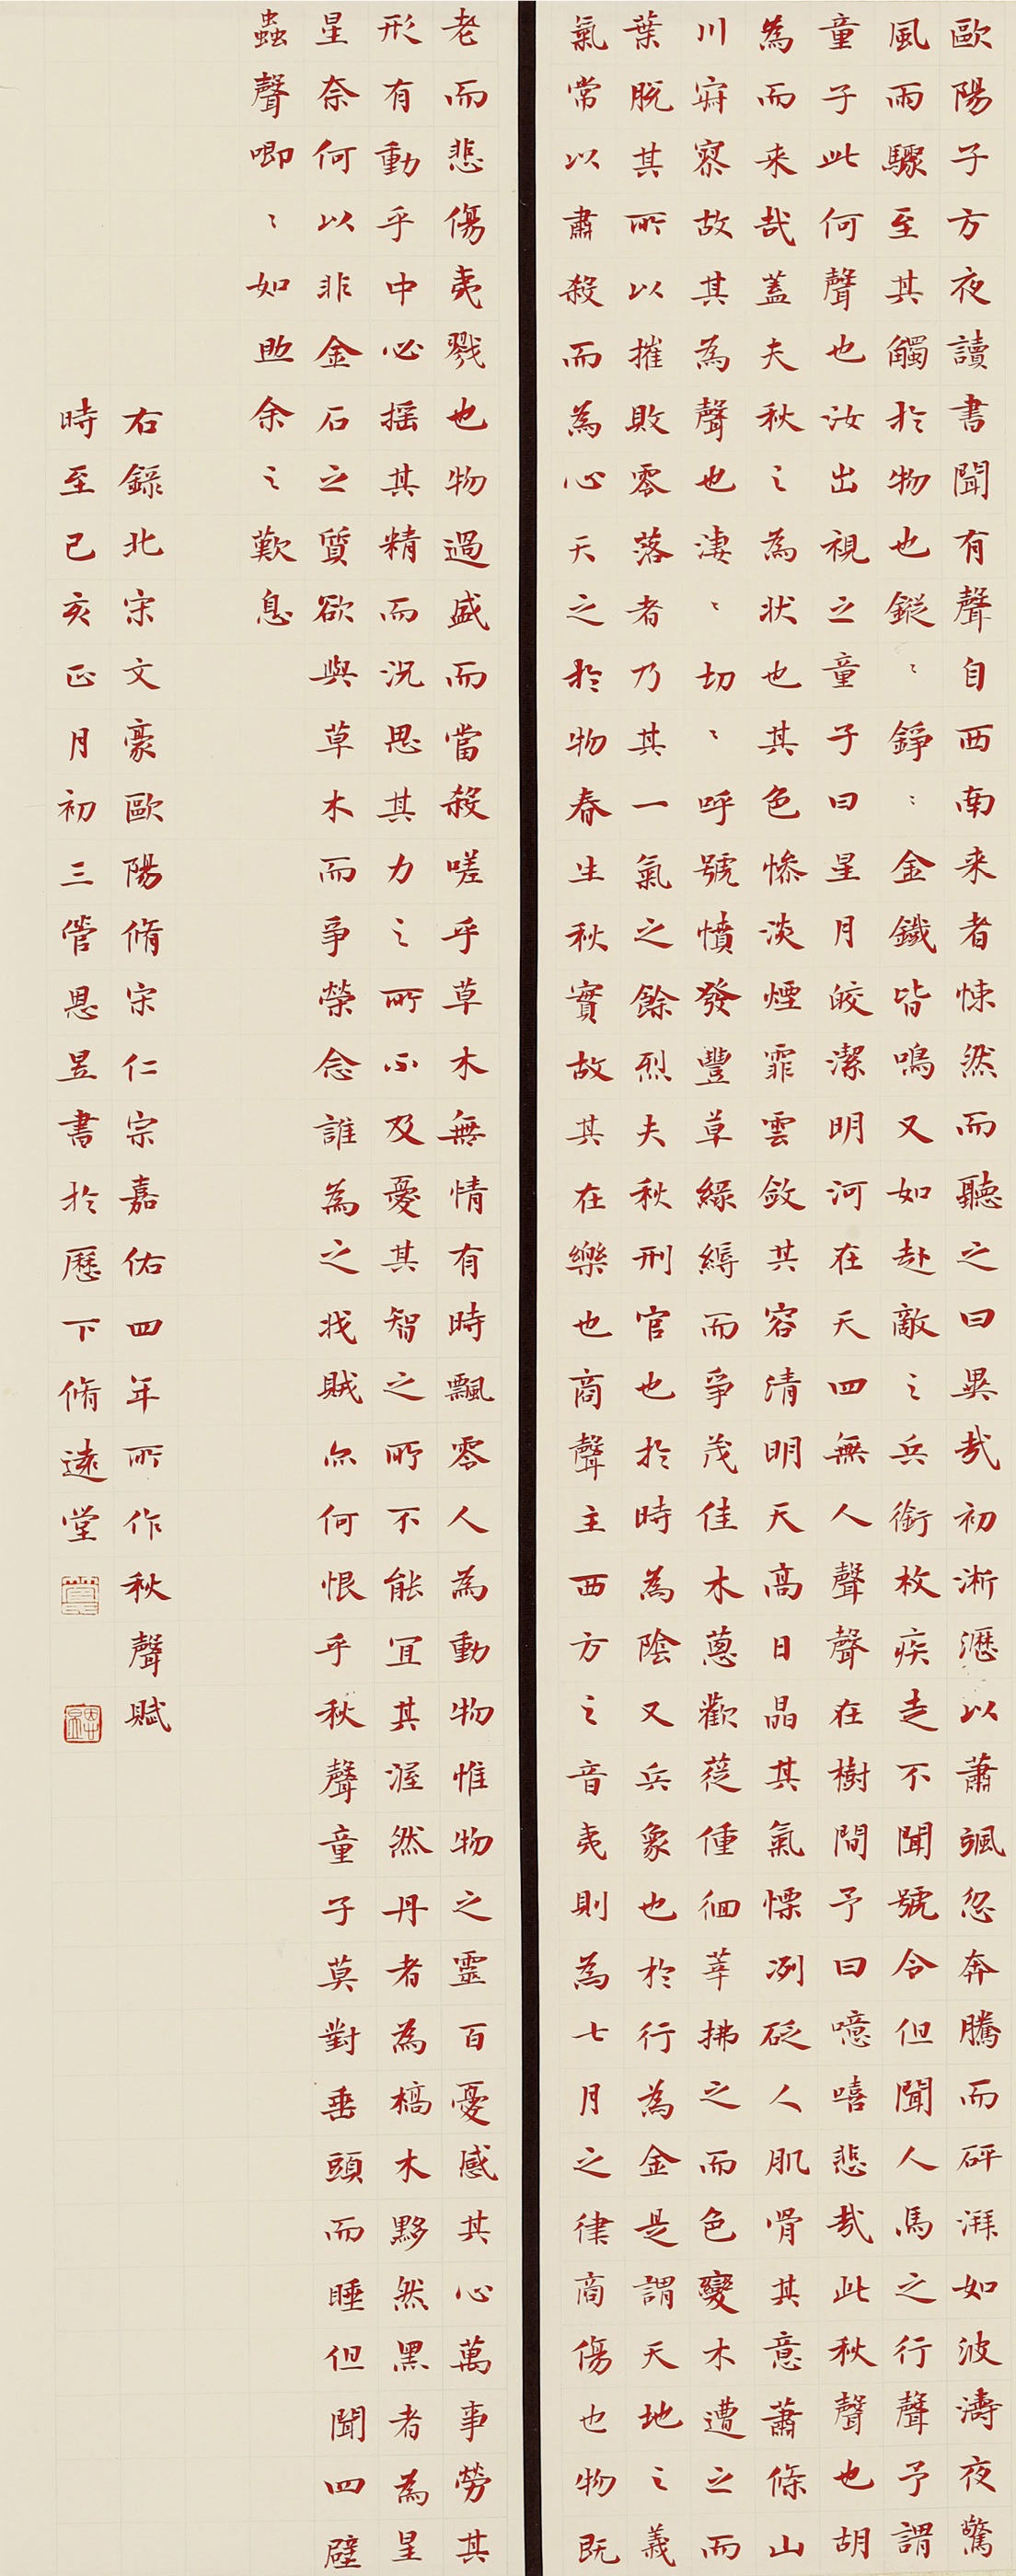 歐陽子方夜讀書聞有聲自西南来者悚然而聽之曰異哉初淅瀝以蕭颯忽奔騰而砰湃如波濤夜驚
風雨驟至其觸於物也鏦〻錚〻金鐵皆鳴又如赴敵之兵銜枚疾走不聞號令但聞人馬之行聲予謂
童子此何聲也汝出視之童子曰星月皎潔明河在天四無人聲聲在樹間予曰噫嘻悲哉此秋聲也胡
為而来哉蓋夫秋之為状也其色慘淡煙霏雲斂其容清明天高日晶其氣慄冽砭人肌骨其意蕭條山
川寂寥故其為聲也淒〻切〻呼號憤發豐草綠縟而爭茂佳木蔥
葉脫其所以摧敗零落者乃其一氣之餘烈夫秋刑官也於時為陰又兵象也於行為金是謂天地之義
氣常以肅殺而為心天之於物春生秋實故其在樂也商聲主西方之音夷則為七月之律商傷也物既
老而悲傷夷戮也物過盛而當殺嗟乎草木無情有時飄零人為動物惟物之靈百憂感其心萬事勞其
形有動乎中必摇其精而況思其力之所不及憂其智之所不能宜其渥然丹者為槁木黟然黑者為星
星奈何以非金石之質欲與草木而爭榮念誰為之戕賊亦何恨乎秋聲童子莫對垂頭而睡但聞四壁
蟲聲唧〻如助余之歎息
右錄北宋文豪歐陽脩宋仁宗嘉佑四年所作秋聲賦
時至己亥正月初三管恩昱書於歷下脩遠堂